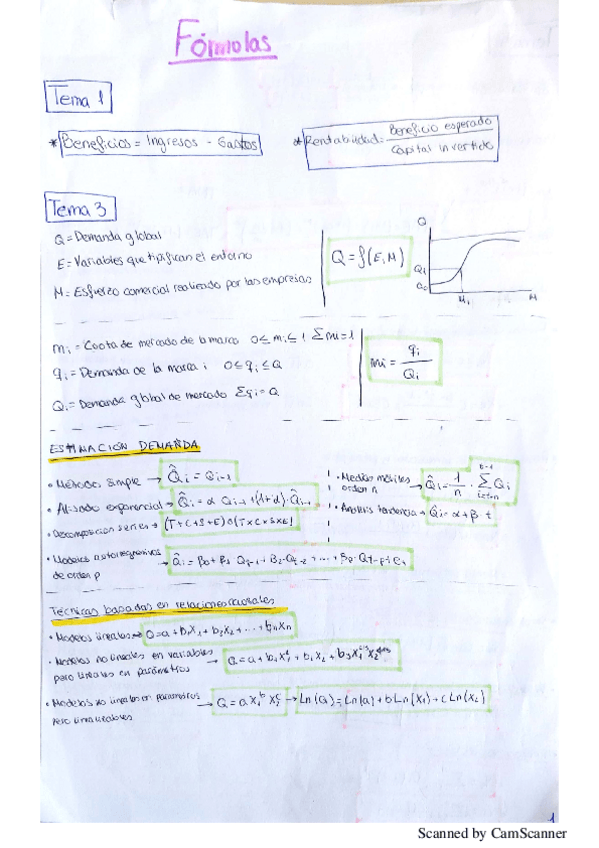 Fórmulas
Tema 1
* Beneficios = Ingresos - Gastos
* Rentabilidad = Beneficio esperado / Capital invertido
Tema 3
Q = Demanda global
E = Variables que tipifican el entorno
M = Esfuerzo comercial realizado por las empresas
Q = f(E, M)
Q
Q1
Q0
M1
M
mi = Cuota de mercado de la marca 0 ≤ mi ≤ 1 Σmi = 1
qi = Demanda de la marca i 0 ≤ qi ≤ Q
Qi = Demanda global de mercado Σqi = Q
mi = qi / Qi
ESTIMACIÓN DEMANDA
• Método simple → Q̂i = Qi-1
• Alisado exponencial → Q̂i = α Qi-1 + (1+α) · Q̂i-1
• Descomposición series → (T+C+S+E) ó (T×C×S×E)
• Modelos autorregresivos → Q̂i = β0 + β1 Qt-1 + β2 · Qt-2 + ... + βp · Qt-p + et
de orden p
• Medias móviles → Q̂i = 1/n · Σ Qi
orden n
• Análisis tendencia → Q̂i = α + β · t
Técnicas basadas en relaciones causales
• Modelos lineales → Q = a + b1x1 + b2x2 + ... + bnxn
• Modelos no lineales en variables
pero lineales en parámetros
• Modelos no lineales en parámetros → Q = a X1^b X2^c → Ln(Q) = Ln(a) + b Ln(X1) + c Ln(X2)
pero linealizables
1
Scanned by CamScanner